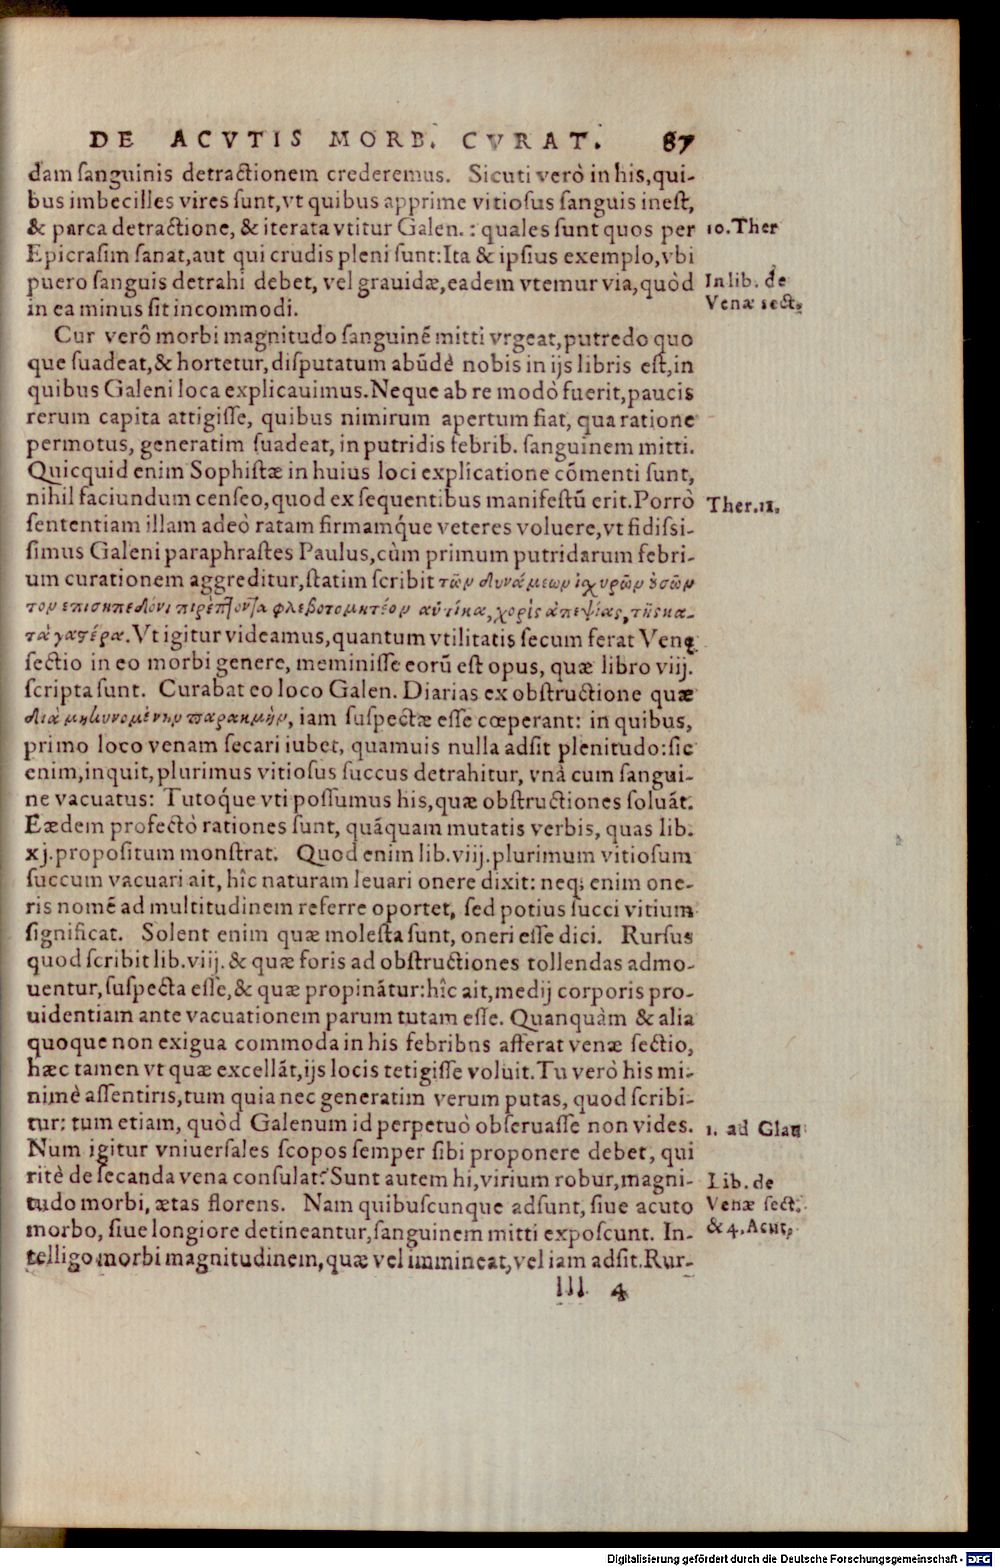 DE ACVTIS MORB. CVRAT. 87
dam ſanguinis detractionem crederemus. Sicuti verò in his,qui-
bus imbecilles vires ſunt,vt quibus apprime vitioſus ſanguis ineſt,
& parca detractione, & iterata vtitur Galen. : quales ſunt quos per
10.Ther
Epicraſim ſanat,aut qui crudis pleni ſunt:Ita & ipſius exemplo,vbi
puero ſanguis detrahi debet, vel grauidæ,eadem vtemur via,quòd
In lib. de
Venæ sect.
in ea minus ſit incommodi.
Cur verô morbi magnitudo ſanguinẽ mitti vrgeat,putredo quo
que ſuadeat,& hortetur,diſputatum abũdè nobis in ijs libris eſt,in
quibus Galeni loca explicauimus.Neque ab re modò fuerit,paucis
rerum capita attigiſſe, quibus nimirum apertum fiat, qua ratione
permotus, generatim ſuadeat, in putridis febrib. ſanguinem mitti.
Quicquid enim Sophiſtæ in huius loci explicatione cõmenti ſunt,
nihil faciundum cenſeo,quod ex ſequentibus manifeſtũ erit.Porrò
Ther.11.
ſententiam illam adeò ratam firmamq́ue veteres voluere,vt fidiſsi-
ſimus Galeni paraphraſtes Paulus,cùm primum putridarum febri-
um curationem aggreditur,ſtatim ſcribit τῶν δυνάμεων ἰσχυρῶν
φλεβοτομητέον αὐτίκα,χορὶς ἀπεψίας, τῆς κα-
τὰ γαστέρα.Vt igitur videamus,quantum vtilitatis ſecum ferat Venę
ſectio in eo morbi genere, meminiſſe eorũ eſt opus, quæ libro viij.
ſcripta ſunt. Curabat eo loco Galen. Diarias ex obſtructione quæ
παρακμὴν, iam ſuſpectæ eſſe cœperant: in quibus,
primo loco venam ſecari iubet, quamuis nulla adſit plenitudo:ſic
enim,inquit,plurimus vitioſus ſuccus detrahitur, vnà cum ſangui-
ne vacuatus: Tutoq́ue vti poſſumus his,quæ obſtructiones ſoluãt.
Eædem profectò rationes ſunt, quãquam mutatis verbis, quas lib.
xj.propoſitum monſtrat. Quod enim lib.viij.plurimum vitioſum
ſuccum vacuari ait, hîc naturam leuari onere dixit: neq; enim one-
ris nomẽ ad multitudinem referre oportet, ſed potius ſucci vitium
ſignificat. Solent enim quæ moleſta ſunt, oneri eſſe dici. Rurſus
quod ſcribit lib.viij. & quæ foris ad obſtructiones tollendas admo-
uentur,ſuſpecta eſſe,& quæ propinãtur:hîc ait,medij corporis pro-
uidentiam ante vacuationem parum tutam eſſe. Quanquàm & alia
quoque non exigua commoda in his febribus afferat venæ ſectio,
hæc tamen vt quæ excellãt,ijs locis tetigiſſe voluit.Tu verò his mi-
nimè aſſentiris,tum quia nec generatim verum putas, quod ſcribi-
tur: tum etiam, quòd Galenum id perpetuò obſeruaſſe non vides.
1. ad Glau
Num igitur vniuerſales ſcopos ſemper ſibi proponere debet, qui
ritè de ſecanda vena conſulat? Sunt autem hi,virium robur,magni-
Lib. de
tudo morbi, ætas florens. Nam quibuſcunque adſunt, ſiue acuto
Venæ ſect.
morbo, ſiue longiore detineantur,ſanguinem mitti expoſcunt. In-
& 4.Acut,
telligo morbi magnitudinem,quæ vel immineat,vel iam adſit.Rur-
lll 4
Digitalisierung gefördert durch die Deutsche Forschungsgemeinschaft - DFG